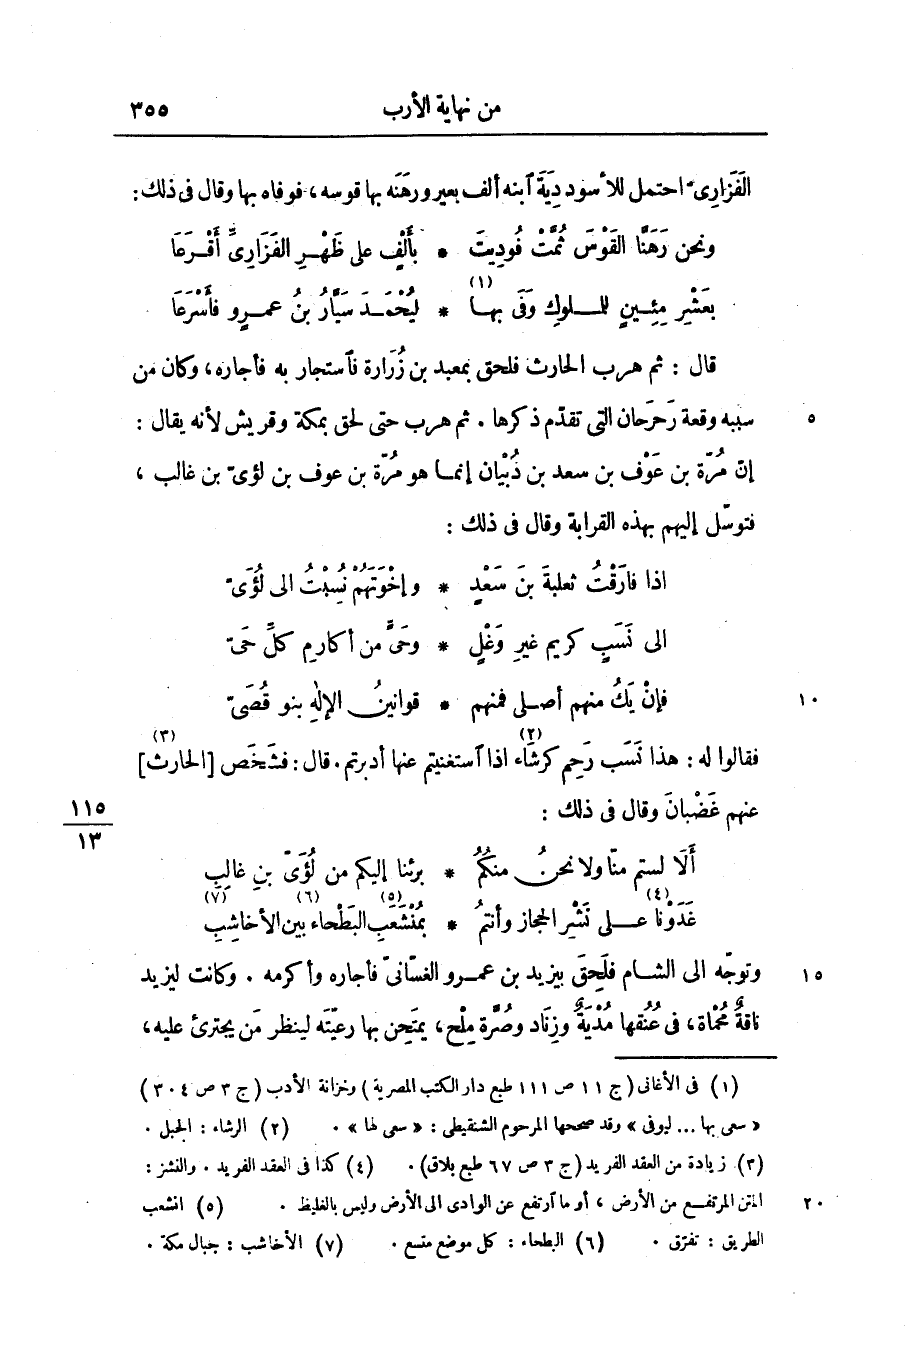 من نهاية الأرب ٣٥٥
الفَزَارِىّ احتمل للأسود دِيَةَ ٱبنه ألف بعير ورهَنَه بها قوسه، فوفاه بها وقال فى ذلك:
ونحن رَهَنَّا القَوْسَ ثُمَّتْ فُودِيتَ * بأَلْفٍ على ظَهْرِ الفَزَارِىِّ أَقْرَعَا
بعَشْرِ مِئِينٍ للملوكِ وَفَى بها (١) * ليُحْمَدَ سَيَّارُ بنُ عمرٍو فأَسْرَعَا
قال : ثم هرب الحارث فلحق بمعبد بن زُرَارة فٱستجار به فأجاره، وكان من
سببه وقعة رَحْرَحان التى تقدّم ذكرها . ثم هرب حتى لحق بمكة وقريش لأنه يقال : ٥
إن مُرّة بن عَوْف بن سعد بن ذُبْيان إنما هو مُرّة بن عوف بن لؤىّ بن غالب ،
فتوسّل إليهم بهذه القرابة وقال فى ذلك :
اذا فارَقْتُ ثعلبةَ بنَ سَعْدٍ * وإخْوَتَهُمْ نُسِبْتُ الى لُؤَىّ
الى نَسَبٍ كريم غيرِ وَغْلٍ * وحَىٍّ من أكارمِ كلِّ حَىّ
فإنْ يَكُ منهم أصلى فمنهم * قوانينُ الإلٰهِ بنو قُصَىّ ١٠
فقالوا له : هذا نَسَب رَحِم كرشَاء (٢) اذا ٱستغنيتم عنها أدبرتم. قال : فشَخَص [الحارث] (٣)
عنهم غَضْبانَ وقال فى ذلك :
١١٥
١٣
أَلَا لستم منّا ولا نحنُ منكُمُ * برئنا إليكم من لُؤَىّ بنِ غالبِ
غَدَوْنا على نَشْزِ (٤) الحجاز وأنتمُ * بمُنْشَعَبِ (٥) البَطْحاء (٦) بين الأخاشِبِ (٧)
وتوجّه الى الشام فلَحِقَ بيزيد بن عمرو الغسّانىّ فأجاره وأكرمه . وكانت ليزيد ١٥
ناقةٌ مُحْمَاة، فى عُنُقها مُدْيَةٌ وزِنَاد وصُرّة مِلْح، يمتَحِن بها رعيّته لينظر مَن يجترئ عليه،
(١) فى الأغانى (ج ١١ ص ١١١ طبع دار الكتب المصرية) وخزانة الأدب (ج ٣ ص ٣٠٤)
« سعى بها ... ليوفى » وقد صححها المرحوم الشنقيطى : « سعى لها » . (٢) الرشاء : الحبل .
(٣) زيادة من العقد الفريد (ج ٣ ص ٦٧ طبع بلاق). (٤) كذا فى العقد الفريد . والنشز :
المتن المرتفع من الأرض ، أو ما ٱرتفع عن الوادى الى الأرض وليس بالغليظ . (٥) انشعب ٢٠
الطريق : تفرّق . (٦) البطحاء : كل موضع متسع . (٧) الأخاشب : جبال مكة .